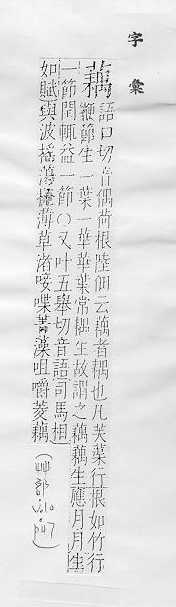 字彙
藕語口切音偶荷根陸佃云藕者耦也凡芙蕖行根如竹行
鞭節生一葉一華華葉常耦生故謂之藕藕生應月月生
一節閏輒益一節〇又叶五舉切音語司馬相
如賦與波搖蕩掩薄草渚唼喋菁藻咀嚼菱藕
(艸部